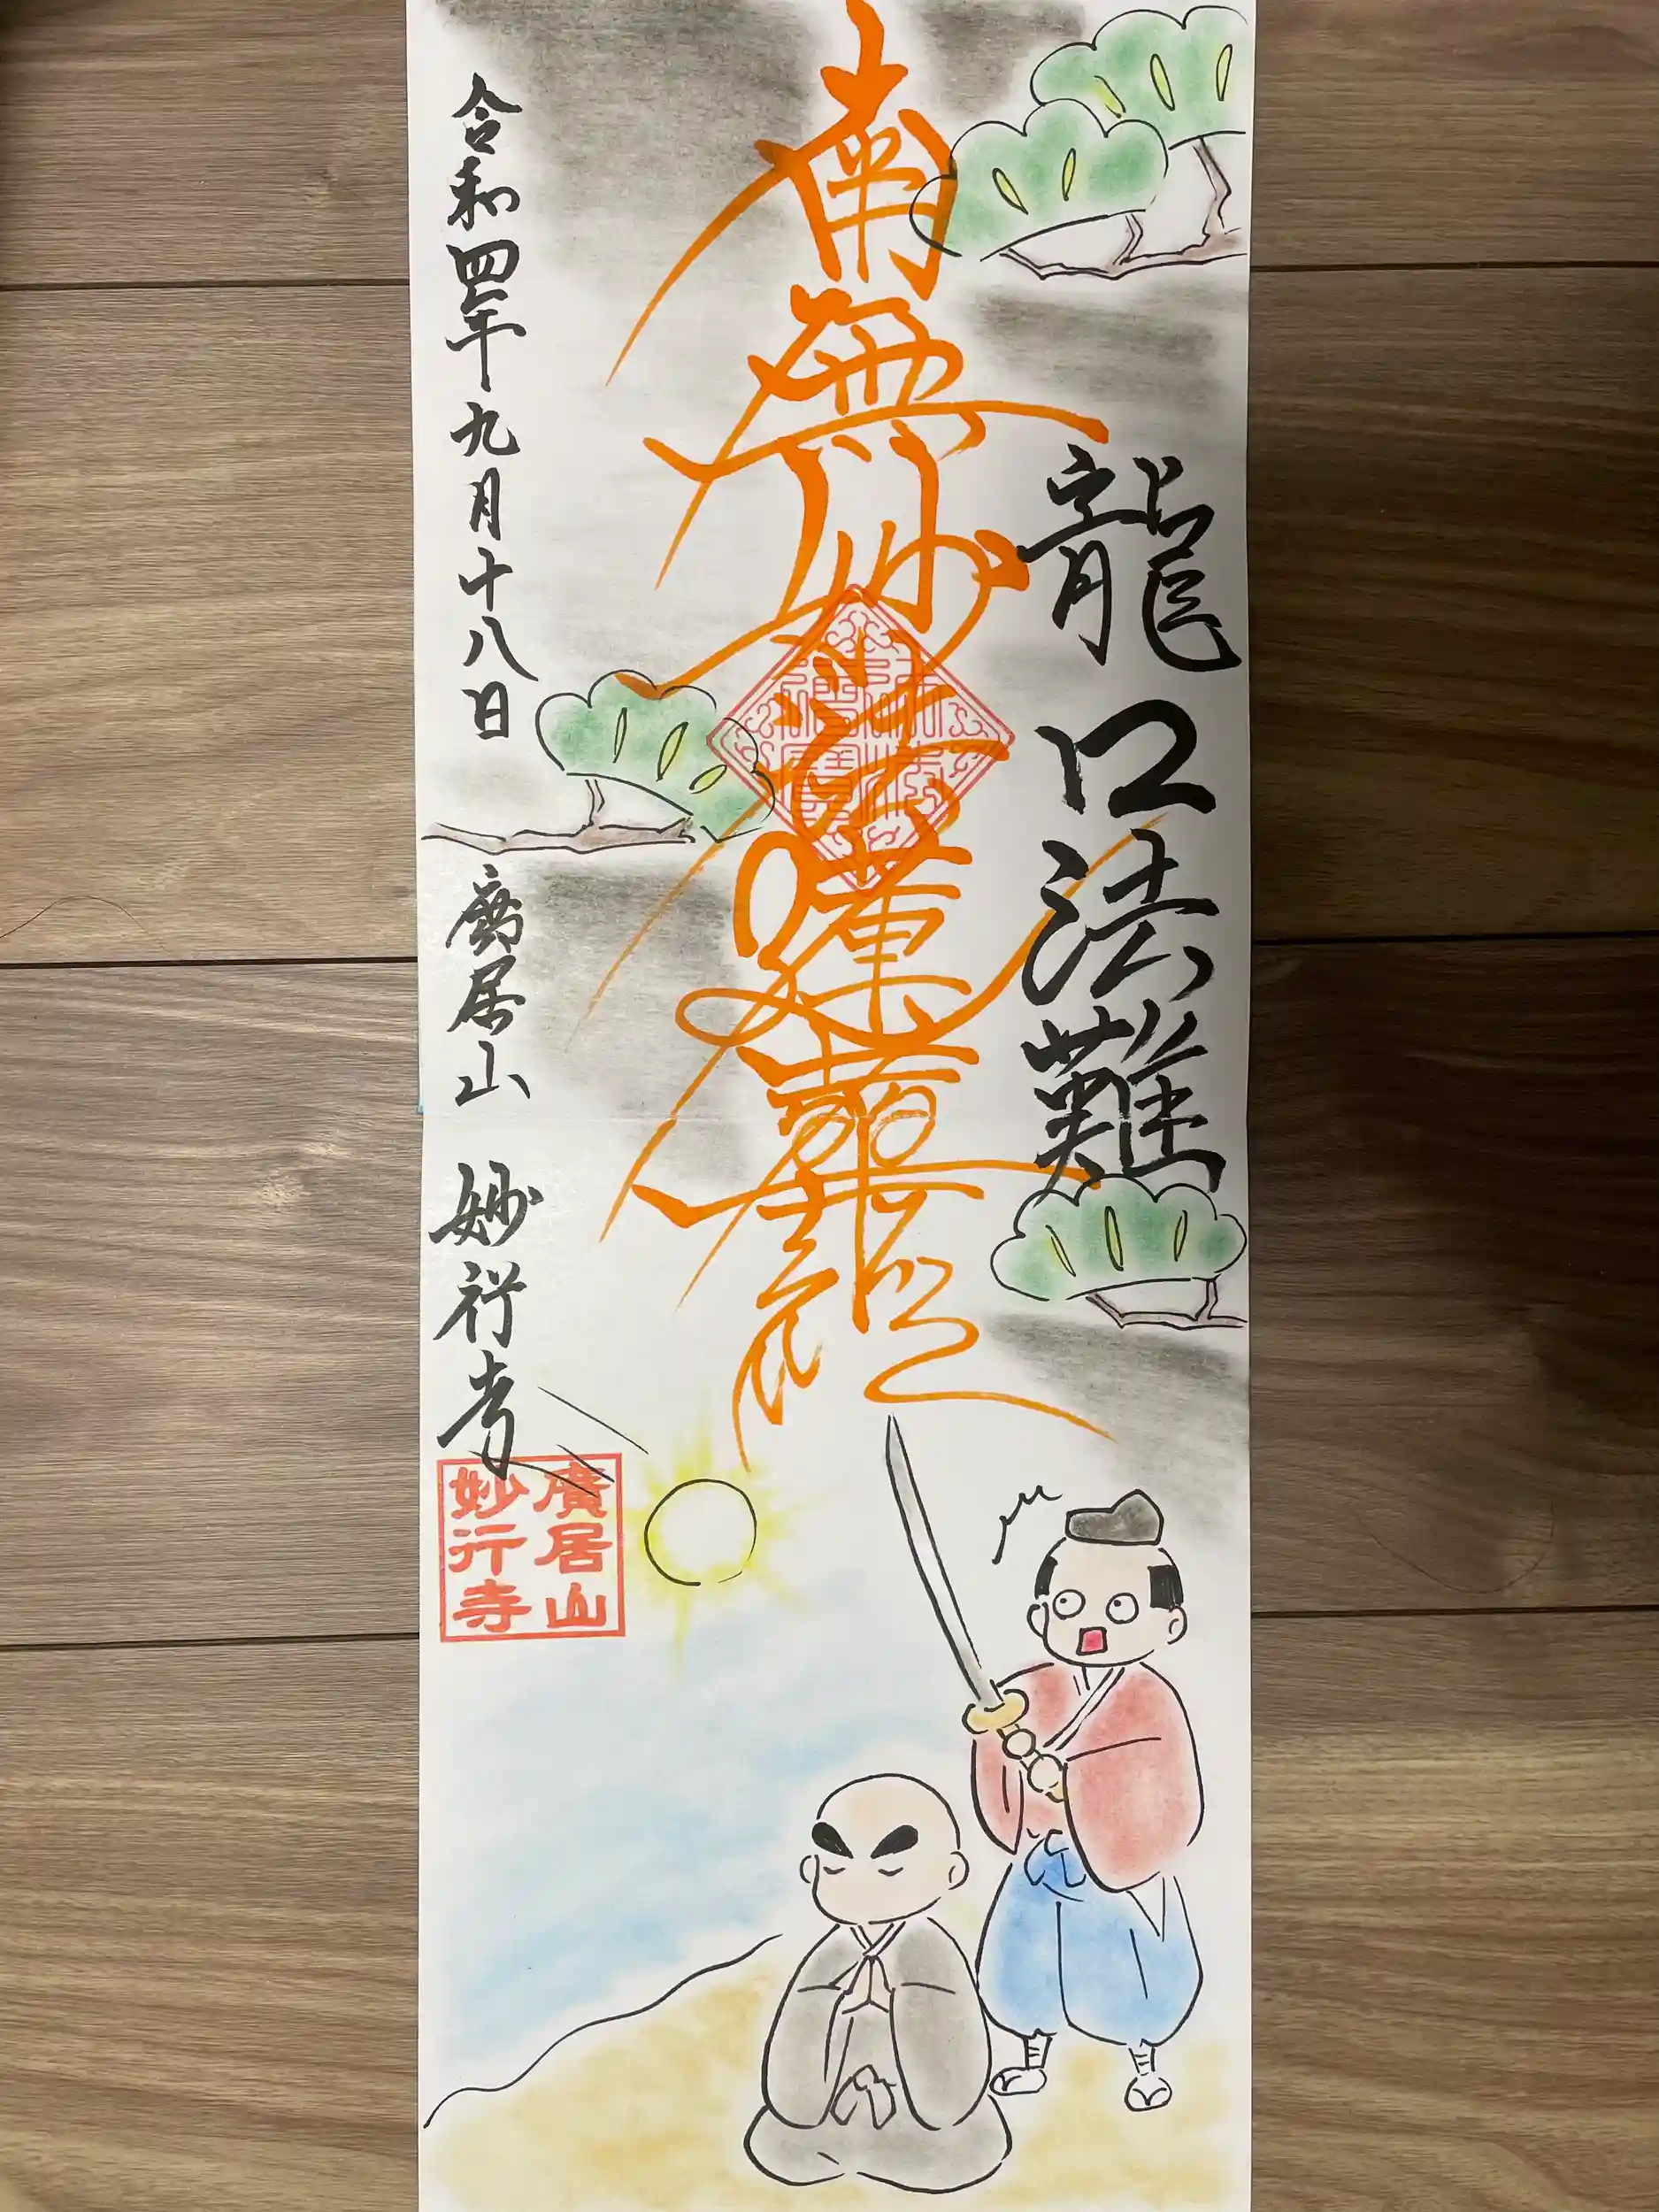 龍口法難
南無妙法蓮華経
令和四年九月十八日
廣居山 妙行寺
廣居山
妙行寺